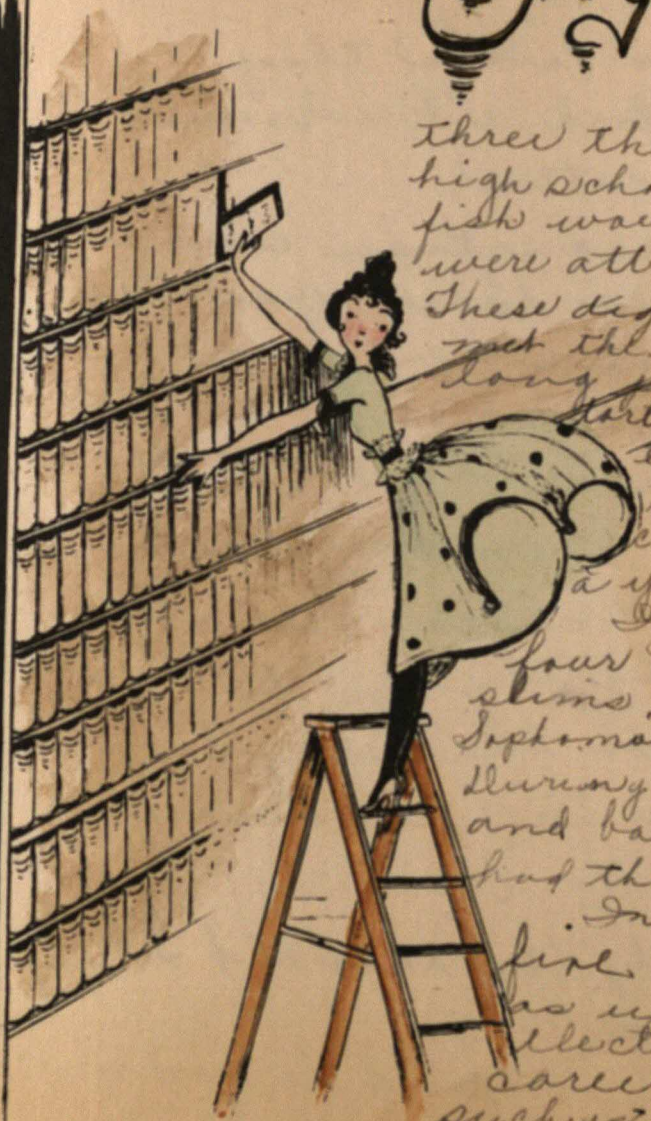 three th
high scho
fish wou
were att
These dig
met the
long
a y
four
slims
Sophomo
During
and ba
had th
In
fine
as u
elect
caree